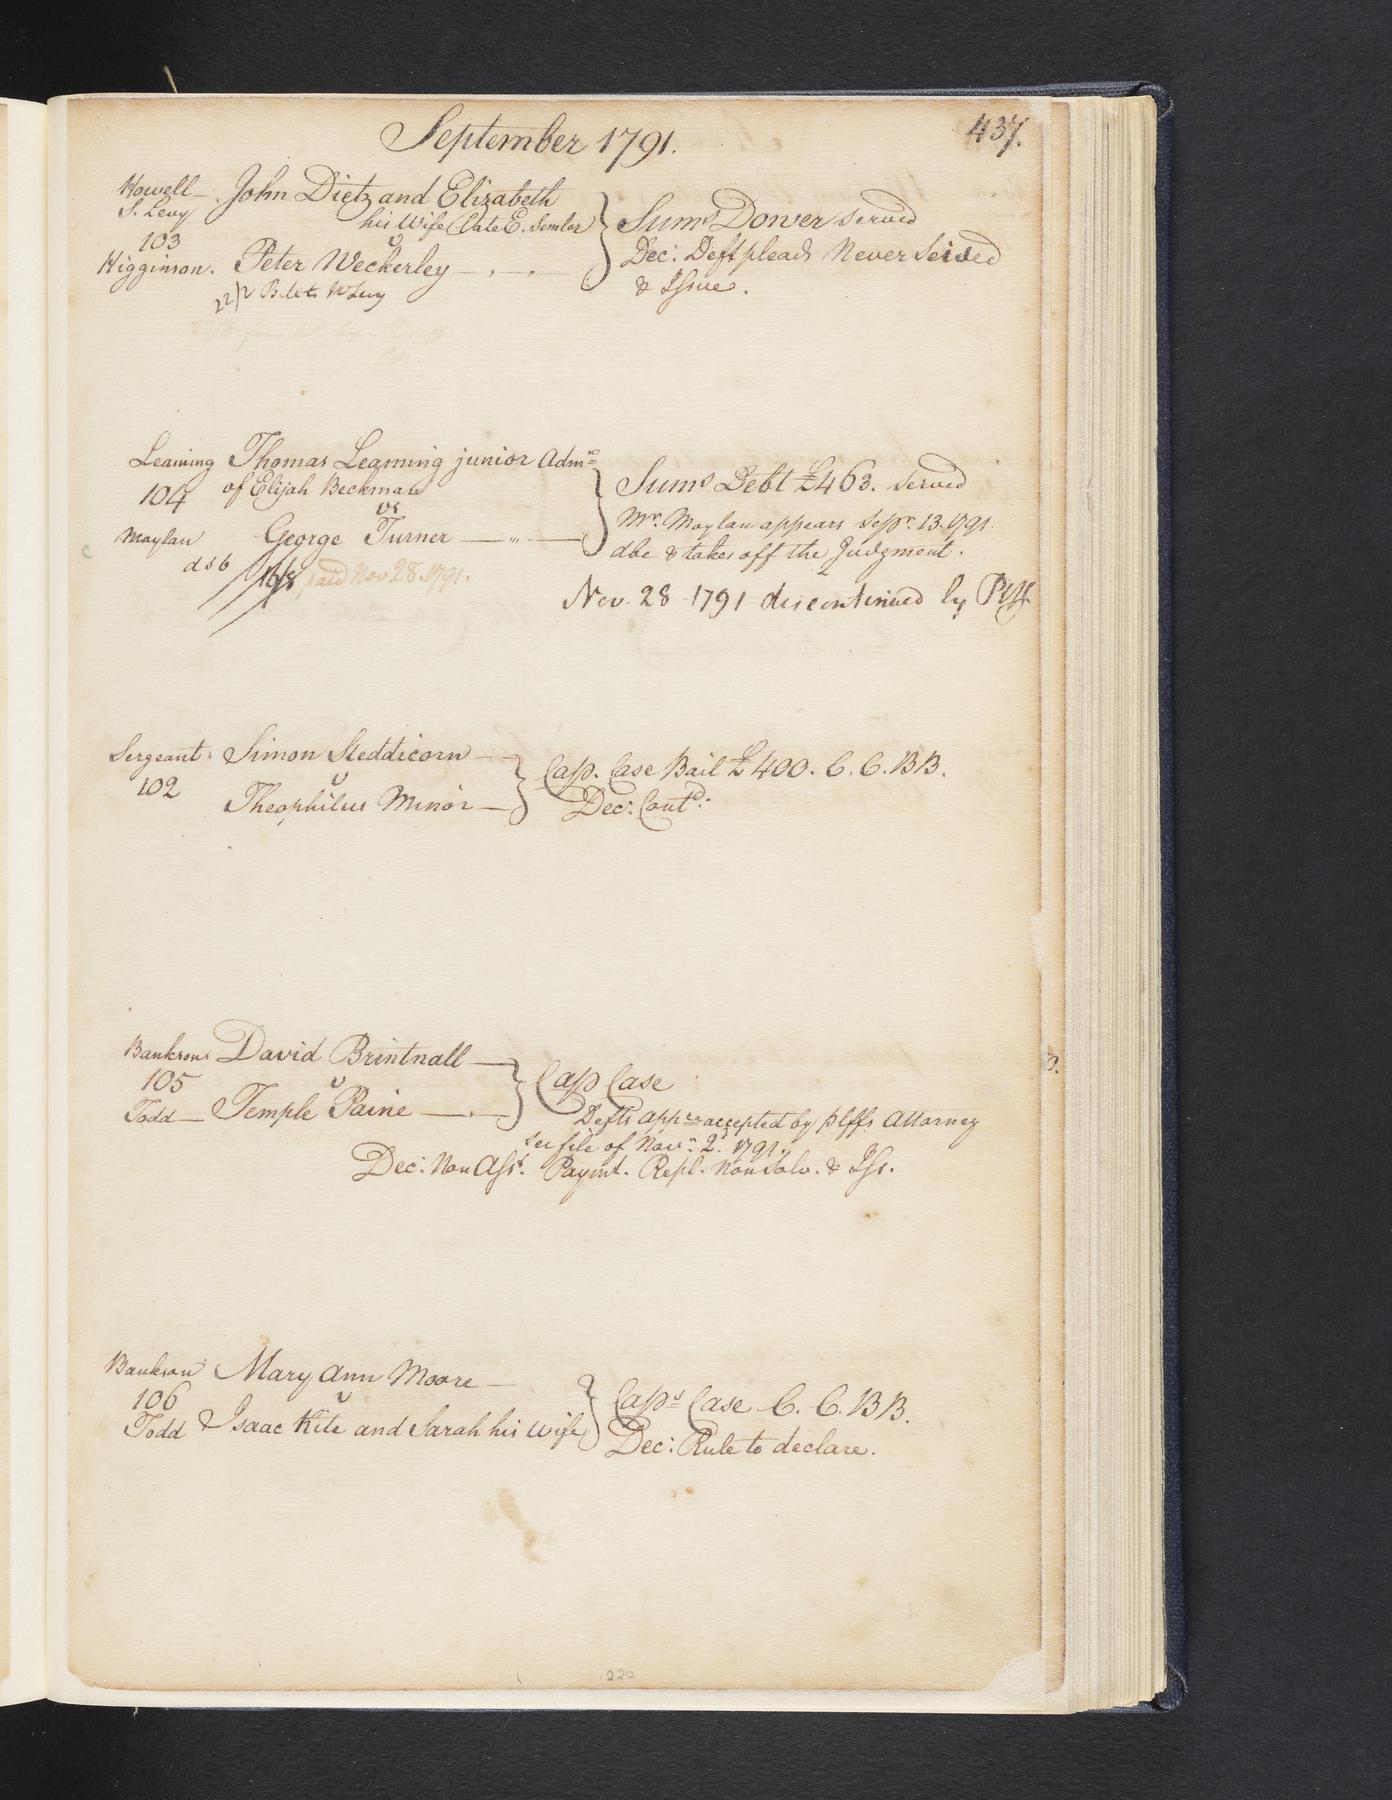 437.
September 1791.
Howell John Dietz and Elizabeth
S. Levy his Wife (late E. Semler)
103 v
Higginson. Peter Weckerley
Sums Dower served
Dec: Deft pleads Never Seised
& Issue.
22/2 Levy
Leaming Thomas Leaming junior Admr
104 of Elijah Beckman
vs
Moylan George Turner
Sums Debt £463. served
Mr. Moylan appears Sepr. 13. 1791.
dbe & takes off the Judgment.
dsb 16/8 paid Nov 28. 1791.
Nov. 28 1791 discontinued by Plff
Sergeant Simon Steddicorn
102 v
Theophilus Minor
Cap. Case Bail £400. C. C. B B.
Dec: Contd.
Bankson David Brintnall
105 v
Todd Temple Paine
Cap Case
Defts appce accepted by plffs Attorney
see file of Novr. 2d. 1791.
Dec: Non Asst. Paymt. Repl. Non Solv. & Iss.
Bankson Mary Ann Moore
106 v
Todd Isaac Kite and Sarah his Wife
Caps Case C. C. B B.
Dec: Rule to declare.
220